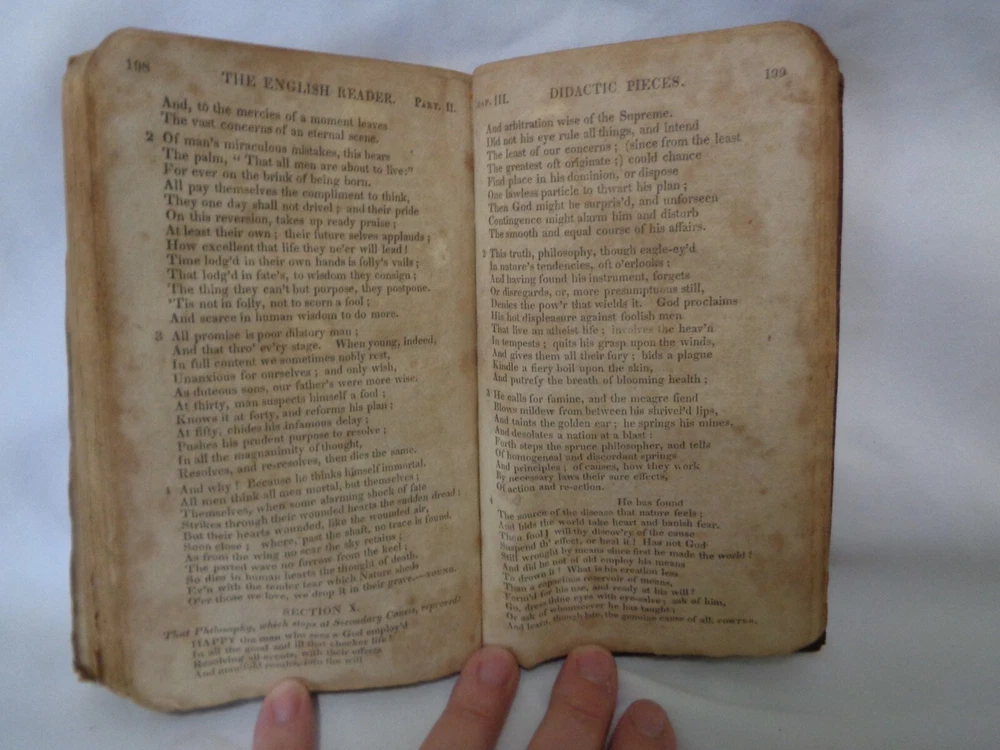 198
THE ENGLISH READER. PART. II.
And, to the mercies of a moment leaves
The vast concerns of an eternal scene.
2 Of man's miraculous mistakes, this bears
The palm, "That all men are about to live:"
For ever on the brink of being born.
All pay themselves the compliment to think,
They one day shall not drivel; and their pride
On this reversion, takes up ready praise;
At least their own; their future selves applauds;
How excellent that life they ne'er will lead!
Time lodg'd in their own hands is folly's vails;
That lodg'd in fate's, to wisdom they consign;
The thing they can't but purpose, they postpone.
'Tis not in folly, not to scorn a fool;
And scarce in human wisdom to do more.
3 All promise is poor dilatory man;
And that thro' ev'ry stage. When young, indeed,
In full content we sometimes nobly rest,
Unanxious for ourselves; and only wish,
As duteous sons, our father's were more wise.
At thirty, man suspects himself a fool;
Knows it at forty, and reforms his plan;
At fifty, chides his infamous delay;
Pushes his prudent purpose to resolve;
In all the magnanimity of thought,
Resolves, and re-resolves, then dies the same.
4 And why? Because he thinks himself immortal.
All men think all men mortal, but themselves;
Themselves, when some alarming shock of fate
Strikes through their wounded hearts the sudden dread;
But their hearts wounded, like the wounded air,
Soon close; where, past the shaft, no trace is found.
As from the wing no scar the sky retains;
The parted wave no furrow from the keel;
So dies in human hearts the thought of death.
Ev'n with the tender tear which Nature sheds
O'er those we love, we drop it in their grave.—YOUNG.
SECTION X.
That Philosophy, which stops at Secondary Causes, reproved.
HAPPY the man who sees a God employ'd
In all the good and ill that checker life!
Resolving all events, with their effects
And manifold results, into the will
III. DIDACTIC PIECES. 199
And arbitration wise of the Supreme.
Did not his eye rule all things, and intend
The least of our concerns; (since from the least
The greatest oft originate;) could chance
Find place in his dominion, or dispose
One lawless particle to thwart his plan;
Then God might be surpris'd, and unforseen
Contingence might alarm him and disturb
The smooth and equal course of his affairs.
2 This truth, philosophy, though eagle-ey'd
In nature's tendencies, oft o'erlooks;
And having found his instrument, forgets
Or disregards, or, more presumptuous still,
Denies the pow'r that wields it. God proclaims
His hot displeasure against foolish men
That live an atheist life; involves the heav'n
In tempests; quits his grasp upon the winds,
And gives them all their fury; bids a plague
Kindle a fiery boil upon the skin,
And putrefy the breath of blooming health;
3 He calls for famine, and the meagre fiend
Blows mildew from between his shrivel'd lips,
And taints the golden ear; he springs his mines,
And desolates a nation at a blast:
Forth steps the spruce philosopher, and tells
Of homogeneal and discordant springs
And principles; of causes, how they work
By necessary laws their sure effects,
Of action and re-action.
4 He has found
The source of the disease that nature feels;
And bids the world take heart and banish fear.
Thou fool! will thy discov'ry of the cause
Suspend th' effect, or heal it? Has not God
Still wrought by means since first he made the world?
And did he not of old employ his means
To drown it? What is his creation less
Than a capacious reservoir of means,
Form'd for his use, and ready at his will?
Go, dress thine eyes with eye-salve; ask of him,
Or ask of whomsoever he has taught;
And learn, though late, the genuine cause of all. COWPER.